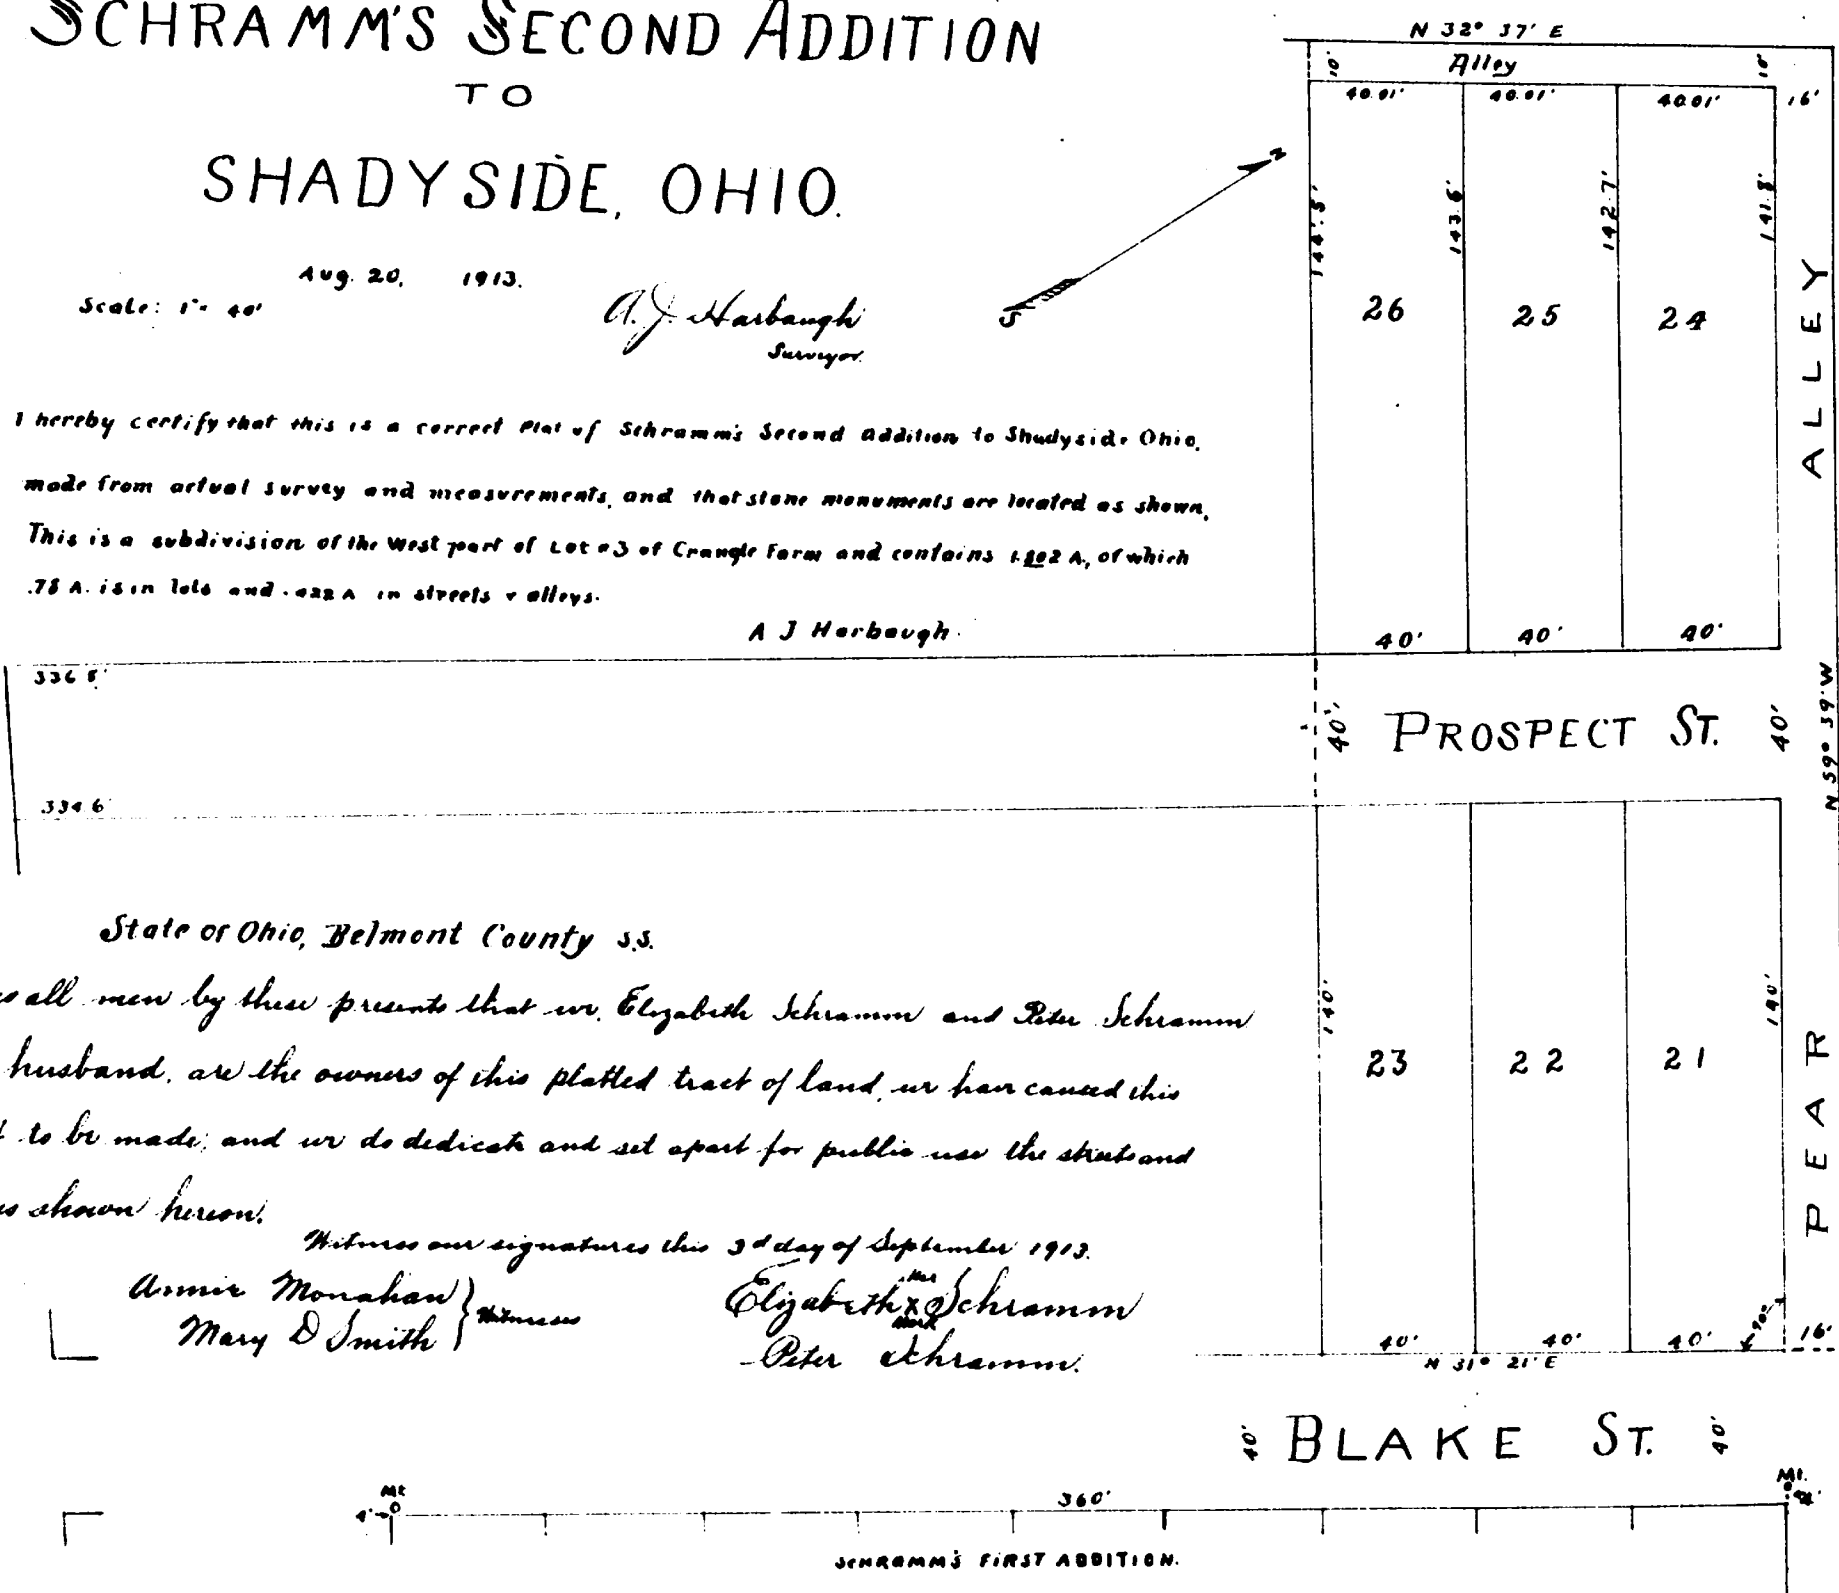 SCHRAMM'S SECOND ADDITION
TO
SHADYSIDE, OHIO.
Aug. 20, 1913.
Scale: 1" = 40'
A. J. Harbaugh
Surveyor.
I hereby certify that this is a correct Plat of Schramm's Second Addition to Shadyside Ohio,
made from actual survey and measurements, and that stone monuments are located as shown.
This is a subdivision of the West part of Lot #3 of Crangle Farm and contains A., of which
.78 A. is in lots and A in streets & alleys.
A J Harbaugh.
336.5'
334.6'
State of Ohio, Belmont County S.S.
all men by these presents that we, Elizabeth Schramm and Peter Schramm
husband, are the owners of this platted tract of land, we have caused this
to be made; and we do dedicate and set apart for public use the streets and
as shown hereon.
Witness our signatures this 3d day of September 1913.
Annie Monahan
Mary D Smith
Witnesses
Elizabeth her x mark Schramm
Peter Schramm.
N 32° 37' E
10' Alley 10'
40.01' 40.01' 40.01' 16'
N
S
144.5' 143.6' 142.7' 141.8'
26 25 24
40' 40' 40'
40' PROSPECT ST. 40'
N 59° 39' W
140' 140'
23 22 21
PEAR ALLEY
40' 40' 40' 90° 16'
N 31° 21' E
40' BLAKE ST. 40'
Mt Mt.
4' 360'
SCHRAMM'S FIRST ADDITION.